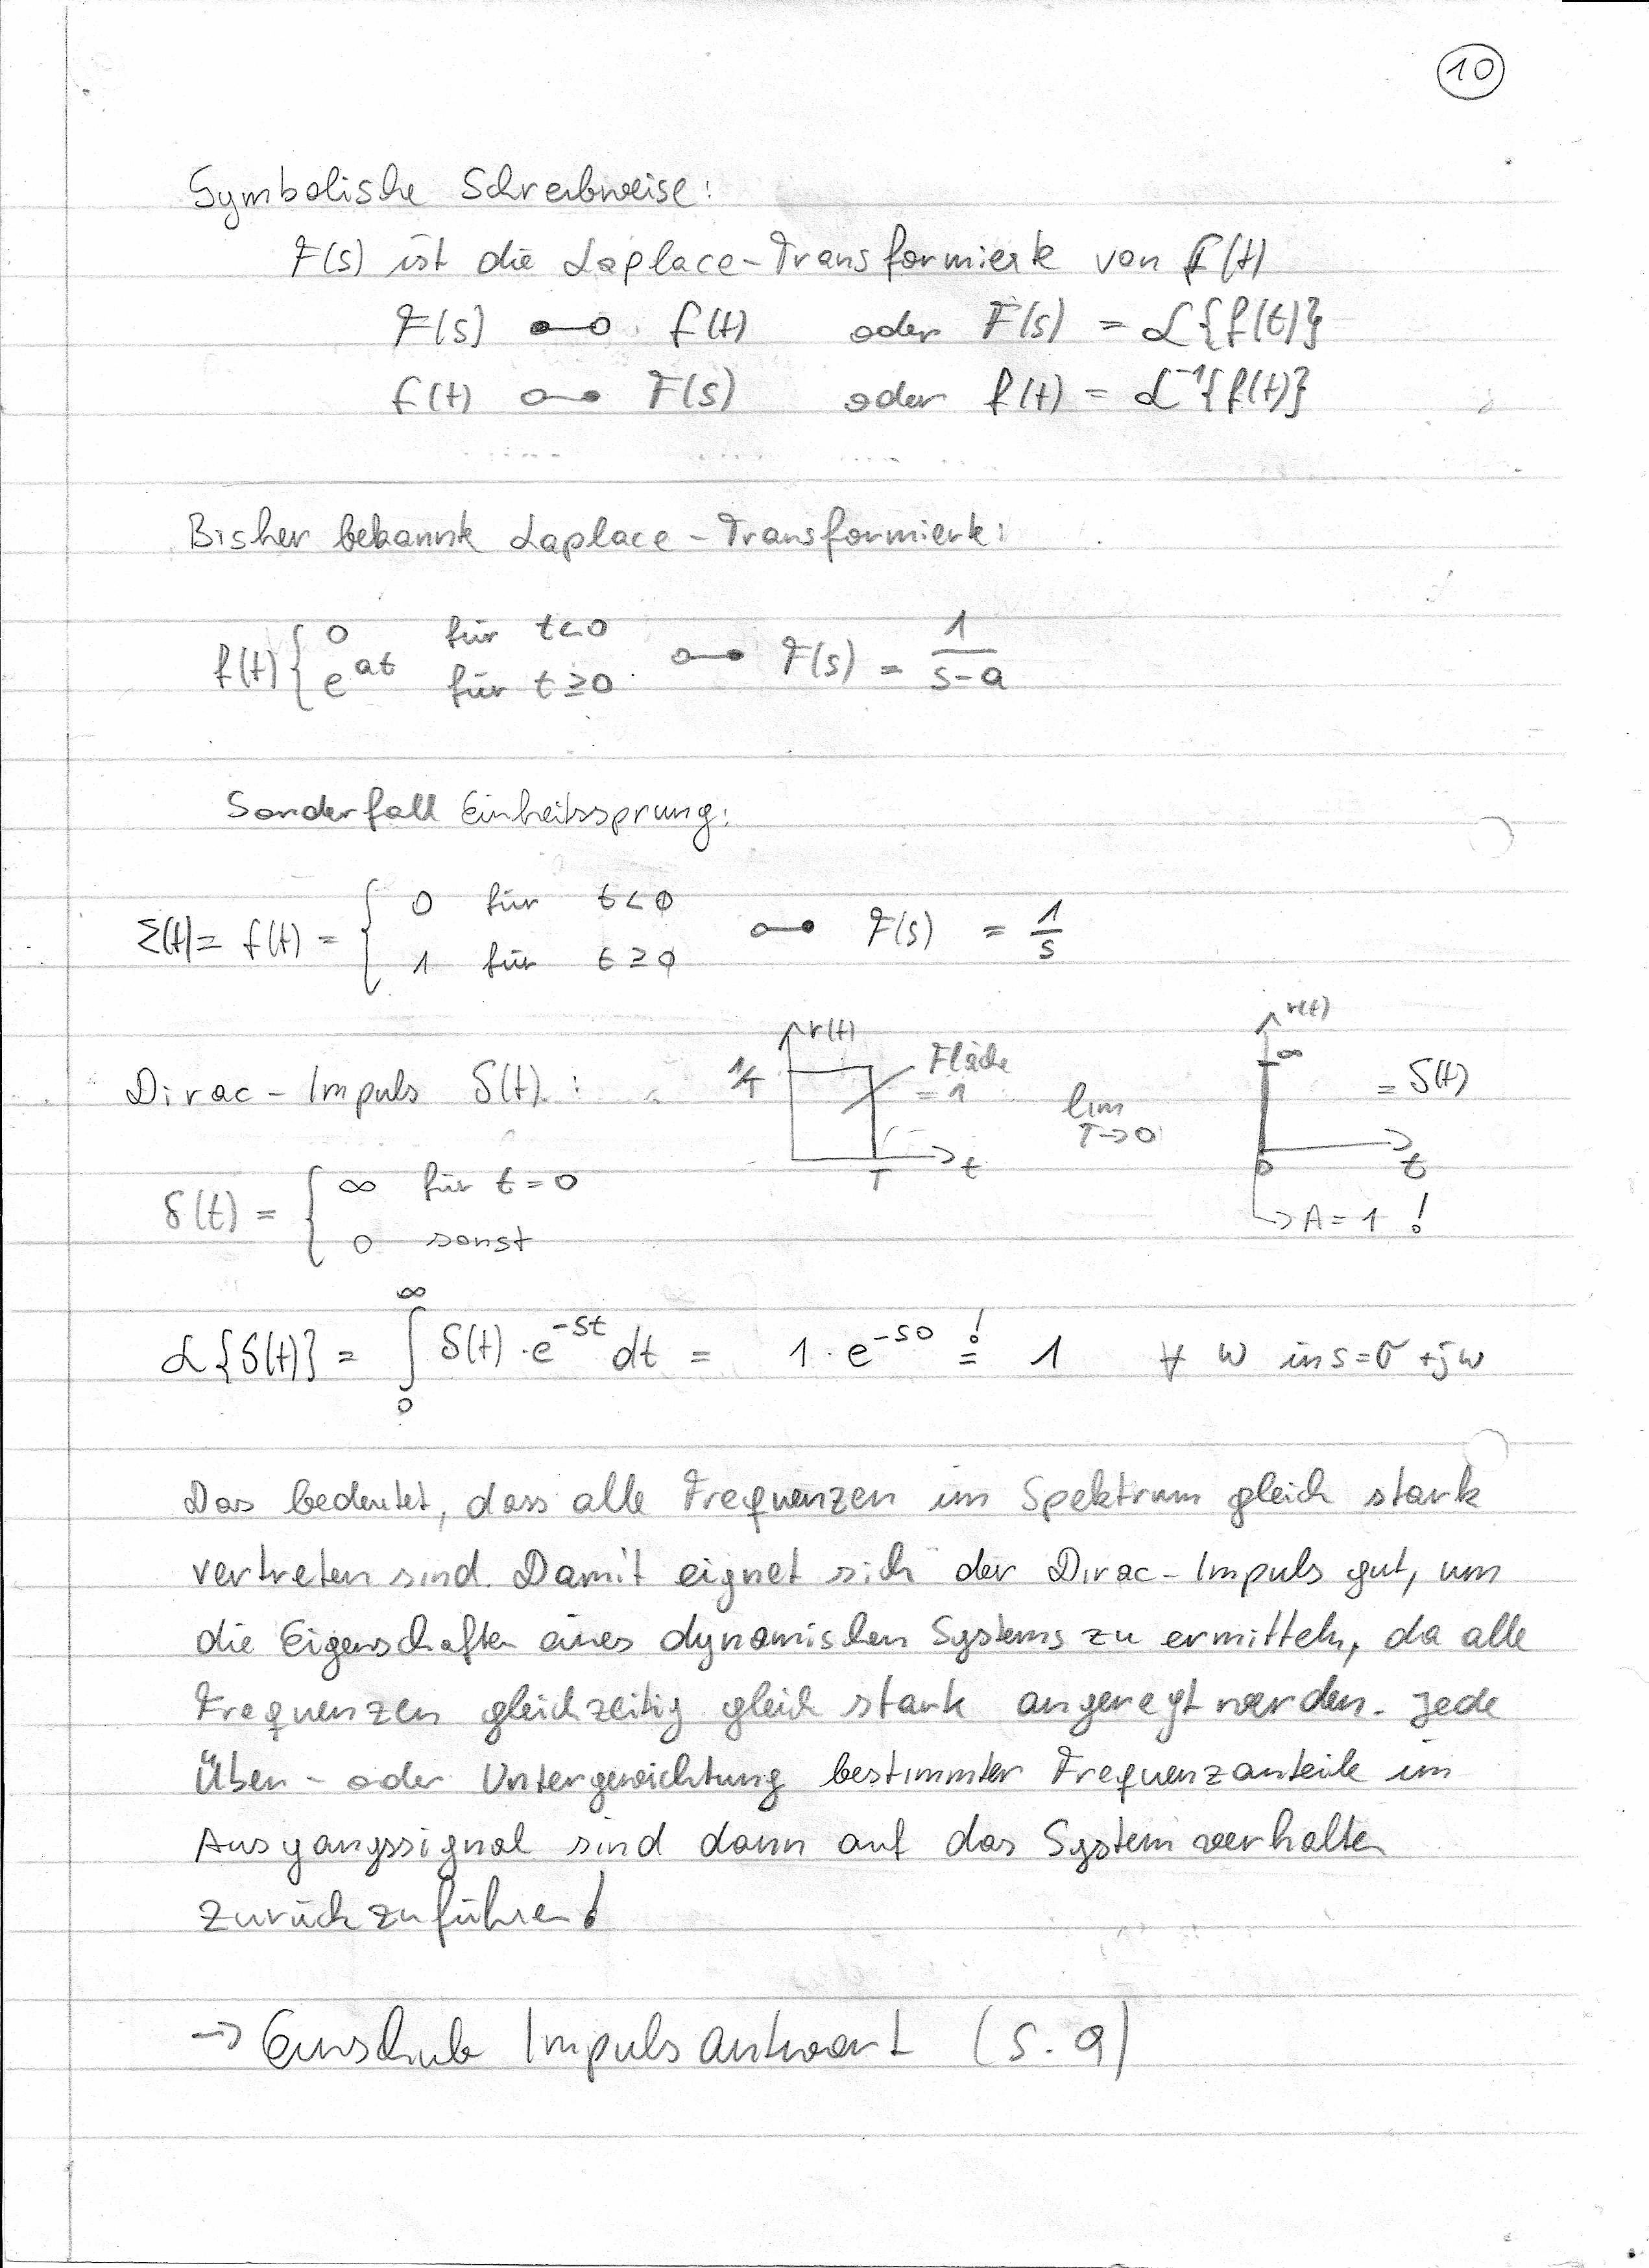 10
Symbolische Schreibweise:
F(s) ist die Laplace-Transformierte von f(t)
F(s) ●—○ f(t) oder F(s) = ℒ{f(t)}
f(t) ○—● F(s) oder f(t) = ℒ⁻¹{f(t)}
Bisher bekannte Laplace-Transformierte:
f(t) { 0 für t<0
e^at für t≥0 ○—● F(s) = 1/(s-a)
Sonderfall Einheitssprung:
Σ(t) = f(t) = { 0 für t<0
1 für t≥0 ○—● F(s) = 1/s
Dirac-Impuls δ(t):
r(t)
1/T
Fläche
= 1
T
t
lim
T→0
r(t)
∞
= δ(t)
0
t
→ A = 1 !
δ(t) = { ∞ für t=0
0 sonst
ℒ{δ(t)} = ∫₀^∞ δ(t) · e^-st dt = 1 · e^-s0 =! 1 ∀ ω in s=σ+jω
Das bedeutet, dass alle Frequenzen im Spektrum gleich stark
vertreten sind. Damit eignet sich der Dirac-Impuls gut, um
die Eigenschaften eines dynamischen Systems zu ermitteln, da alle
Frequenzen gleichzeitig gleich stark angeregt werden. Jede
Über- oder Untergewichtung bestimmter Frequenzanteile im
Ausgangssignal sind dann auf das Systemverhalten
zurückzuführen!
→ Einschub Impulsantwort (S. 9)